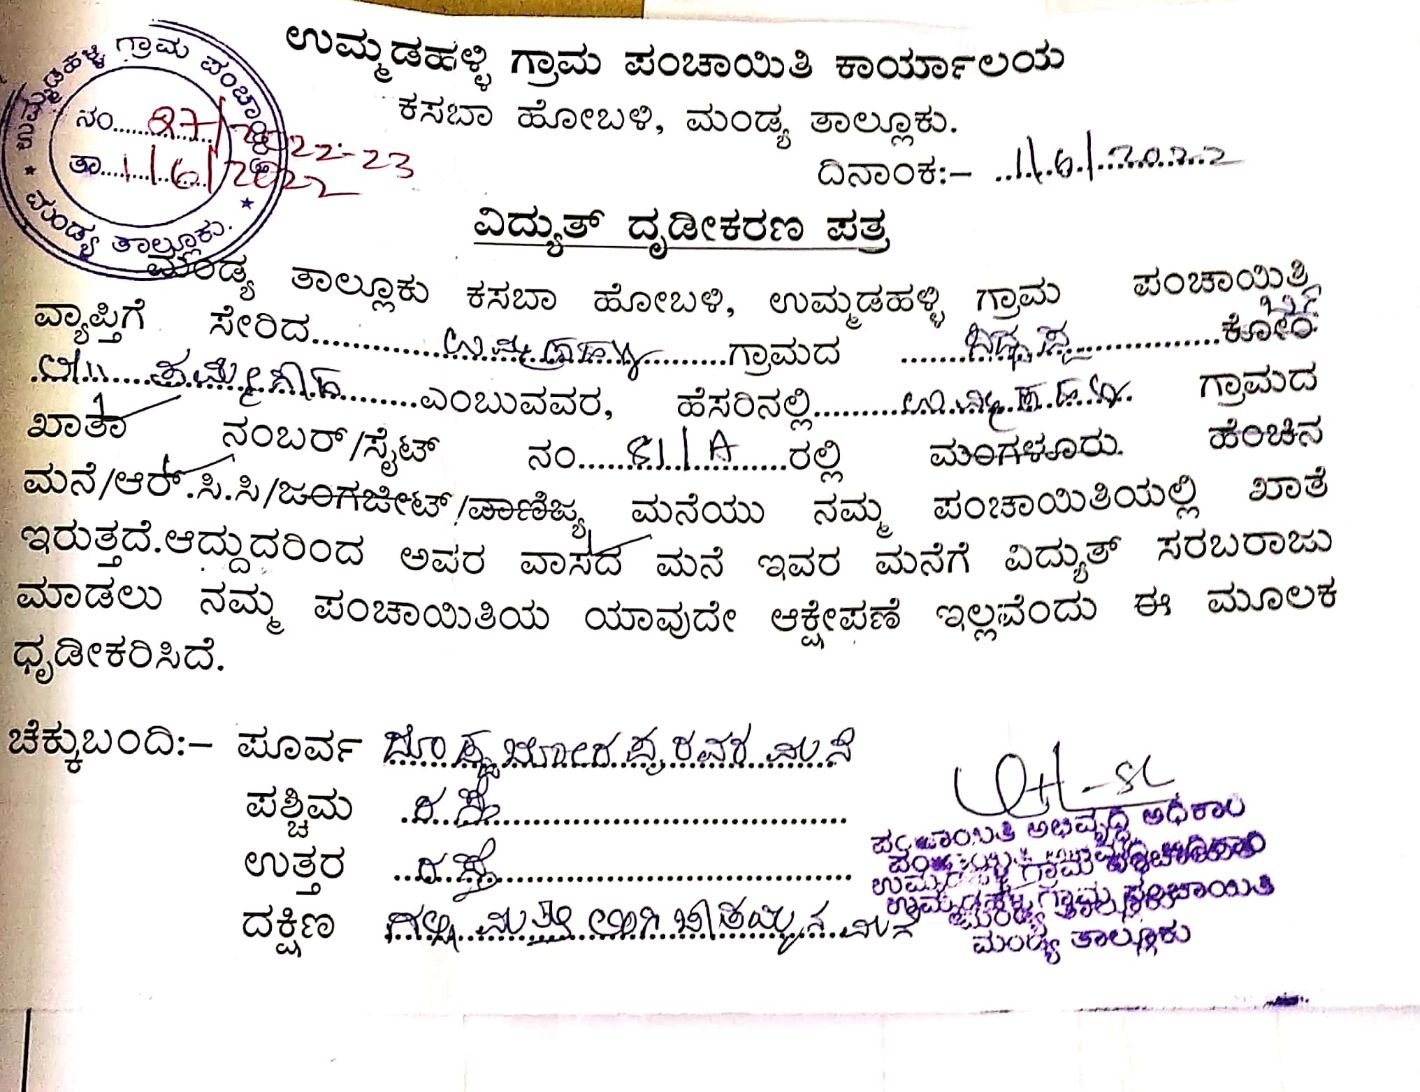 ಉಮ್ಮಡಹಳ್ಳಿ ಗ್ರಾಮ ಪಂಚಾಯಿತಿ ಕಾರ್ಯಾಲಯ
ಕಸಬಾ ಹೋಬಳಿ, ಮಂಡ್ಯ ತಾಲ್ಲೂಕು.
ಉಮ್ಮಡಹಳ್ಳಿ ಗ್ರಾಮ ಪಂಚಾಯಿತಿ
ನಂ. 87/2022-23
ತಾ. 1/6/2022
ಮಂಡ್ಯ ತಾಲ್ಲೂಕು.
ದಿನಾಂಕ:– 1/6/2022
ವಿದ್ಯುತ್ ದೃಡೀಕರಣ ಪತ್ರ
ಮಂಡ್ಯ ತಾಲ್ಲೂಕು ಕಸಬಾ ಹೋಬಳಿ, ಉಮ್ಮಡಹಳ್ಳಿ ಗ್ರಾಮ ಪಂಚಾಯಿತ್ರಿ
ವ್ಯಾಪ್ತಿಗೆ ಸೇರಿದ ಉಮ್ಮಡಹಳ್ಳಿ ಗ್ರಾಮದ ಕೋಂ
ಎಂಬುವವರ, ಹೆಸರಿನಲ್ಲಿ ಉಮ್ಮಡಹಳ್ಳಿ ಗ್ರಾಮದ
ಖಾತಾ ನಂಬರ್/ಸೈಟ್ ನಂ. 81/A ರಲ್ಲಿ ಮಂಗಳೂರು ಹೆಂಚಿನ
ಮನೆ/ಆರ್.ಸಿ.ಸಿ/ಜಂಗಜೀಟ್/ವಾಣಿಜ್ಯ ಮನೆಯು ನಮ್ಮ ಪಂಚಾಯಿತಿಯಲ್ಲಿ ಖಾತೆ
ಇರುತ್ತದೆ.ಆದ್ದುದರಿಂದ ಅವರ ವಾಸದ ಮನೆ ಇವರ ಮನೆಗೆ ವಿದ್ಯುತ್ ಸರಬರಾಜು
ಮಾಡಲು ನಮ್ಮ ಪಂಚಾಯಿತಿಯ ಯಾವುದೇ ಆಕ್ಷೇಪಣೆ ಇಲ್ಲವೆಂದು ಈ ಮೂಲಕ
ಧೃಡೀಕರಿಸಿದೆ.
ಚೆಕ್ಕುಬಂದಿ:– ಪೂರ್ವ
ಪಶ್ಚಿಮ ರಸ್ತೆ
ಉತ್ತರ ರಸ್ತೆ
ದಕ್ಷಿಣ
ಪಂಚಾಯಿತಿ ಅಭಿವೃದ್ಧಿ ಅಧಿಕಾರಿ
ಉಮ್ಮಡಹಳ್ಳಿ ಗ್ರಾಮ ಪಂಚಾಯಿತಿ
ಮಂಡ್ಯ ತಾಲ್ಲೂಕು